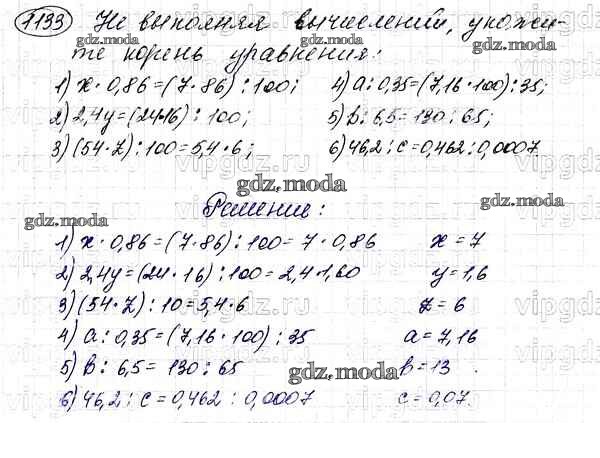 1193 Не выполняя вычислений, укажи-
те корень уравнения:
1) x · 0,86 = (7 · 86) : 100; 4) a : 0,35 = (7,16 · 100) : 35;
2) 2,4y = (24·16) : 100; 5) b : 6,5 = 130 : 65;
3) (54 · z) : 100 = 5,4 · 6; 6) 46,2 : c = 0,462 : 0,0007
Решение:
1) x · 0,86 = (7 · 86) : 100 = 7 · 0,86 x = 7
2) 2,4y = (24 · 16) : 100 = 2,4·1,60 y = 1,6
3) (54 · z) : 10 = 5,4 · 6 z = 6
4) a : 0,35 = (7,16 · 100) : 35 a = 7,16
5) b : 6,5 = 130 : 65 b = 13 .
6) 46,2 : c = 0,462 : 0,0007 c = 0,07
gdz.moda
gdz.moda
gdz.moda
gdz.moda
gdz.moda
gdz.moda
gdz.moda
vipgdz